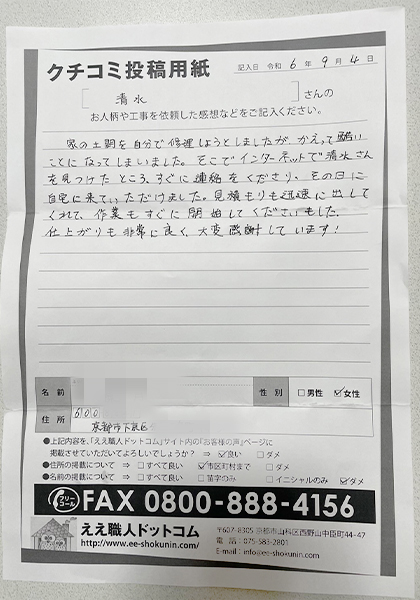 クチコミ投稿用紙
記入日 令和 6 年 9 月 4 日
[ 清水 ] さんの
お人柄や工事を依頼した感想などをご記入ください。
家の土間を自分で修理しようとしましたが、かえって酷い
ことになってしまいました。そこでインターネットで清水さん
を見つけたところ、すぐに連絡をくださり、その日に
自宅に来ていただけました。見積もりも迅速に出して
くれて、作業もすぐに開始してくださいました。
仕上がりも非常に良く、大変感謝しています!
名前
性別 □男性 ☑女性
住所 600
京都市下京区
●上記内容を、「ええ職人ドットコム」サイト内の『お客様の声』ページに
掲載させていただいてよろしいでしょうか? ⇒ ☑良い □ダメ
●住所の掲載について ⇒ □すべて良い ☑市区町村まで □ダメ
●名前の掲載について ⇒ □すべて良い □苗字のみ □イニシャルのみ ☑ダメ
フリーコール FAX 0800-888-4156
ええ職人ドットコム
http://www.ee-shokunin.com/
〒607-8305 京都市山科区西野山中臣町44-47
電話:075-583-2801
E-mail:info@ee-shokunin.com